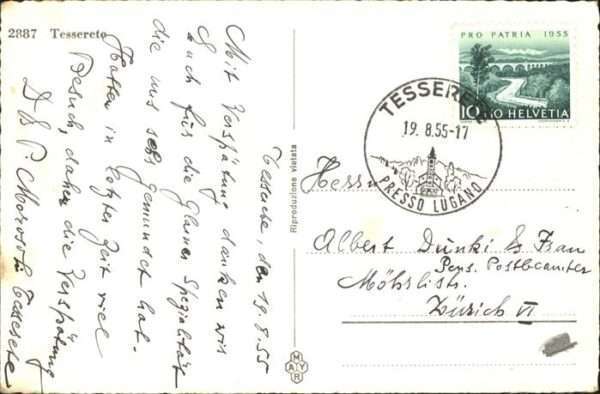 2887 Tessereto
Tesserete, den 19.8.55
Mit Verspätung danken wir
Euch für die Glarner Spezialität
die uns sehr gemundet hat.
Hatten in letzter Zeit viel
Besuch, daher die Verspätung
D & P.
Tesserete
Riproduzione vietata
MAYR
PRO PATRIA 1955
10 10 HELVETIA
TESSERETE
19.8.55-17
PRESSO LUGANO
Herrn
Albert Dünki & Frau
Pens. Postbeamter
Möhrlistr.
Zürich VI